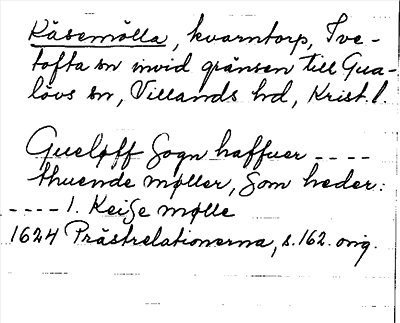 Käsemölla, kvarntorp, Ive-
tofta sn invid gränsen till Gua-
lövs sn, Villands hd, Krist. l.
Gueløff Sogn haffuer ----
thuende møller, Som heder:
---- 1. Keise mølle
1624 Prästrelationerna, s. 162. orig.